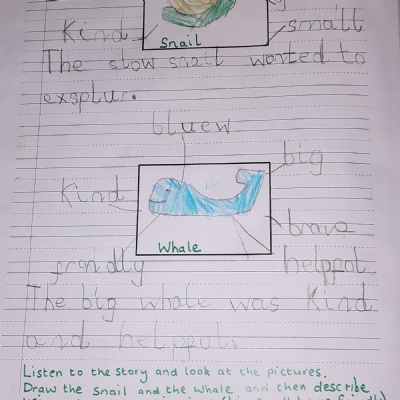 Kind small
Snail
The slow snail wanted to
exsplur.
bluew
big
Kind
brave
Whale
frondly helpfol
The big whale was Kind
and helpful.
Listen to the story and look at the pictures.
Draw the snail and the whale and then describe